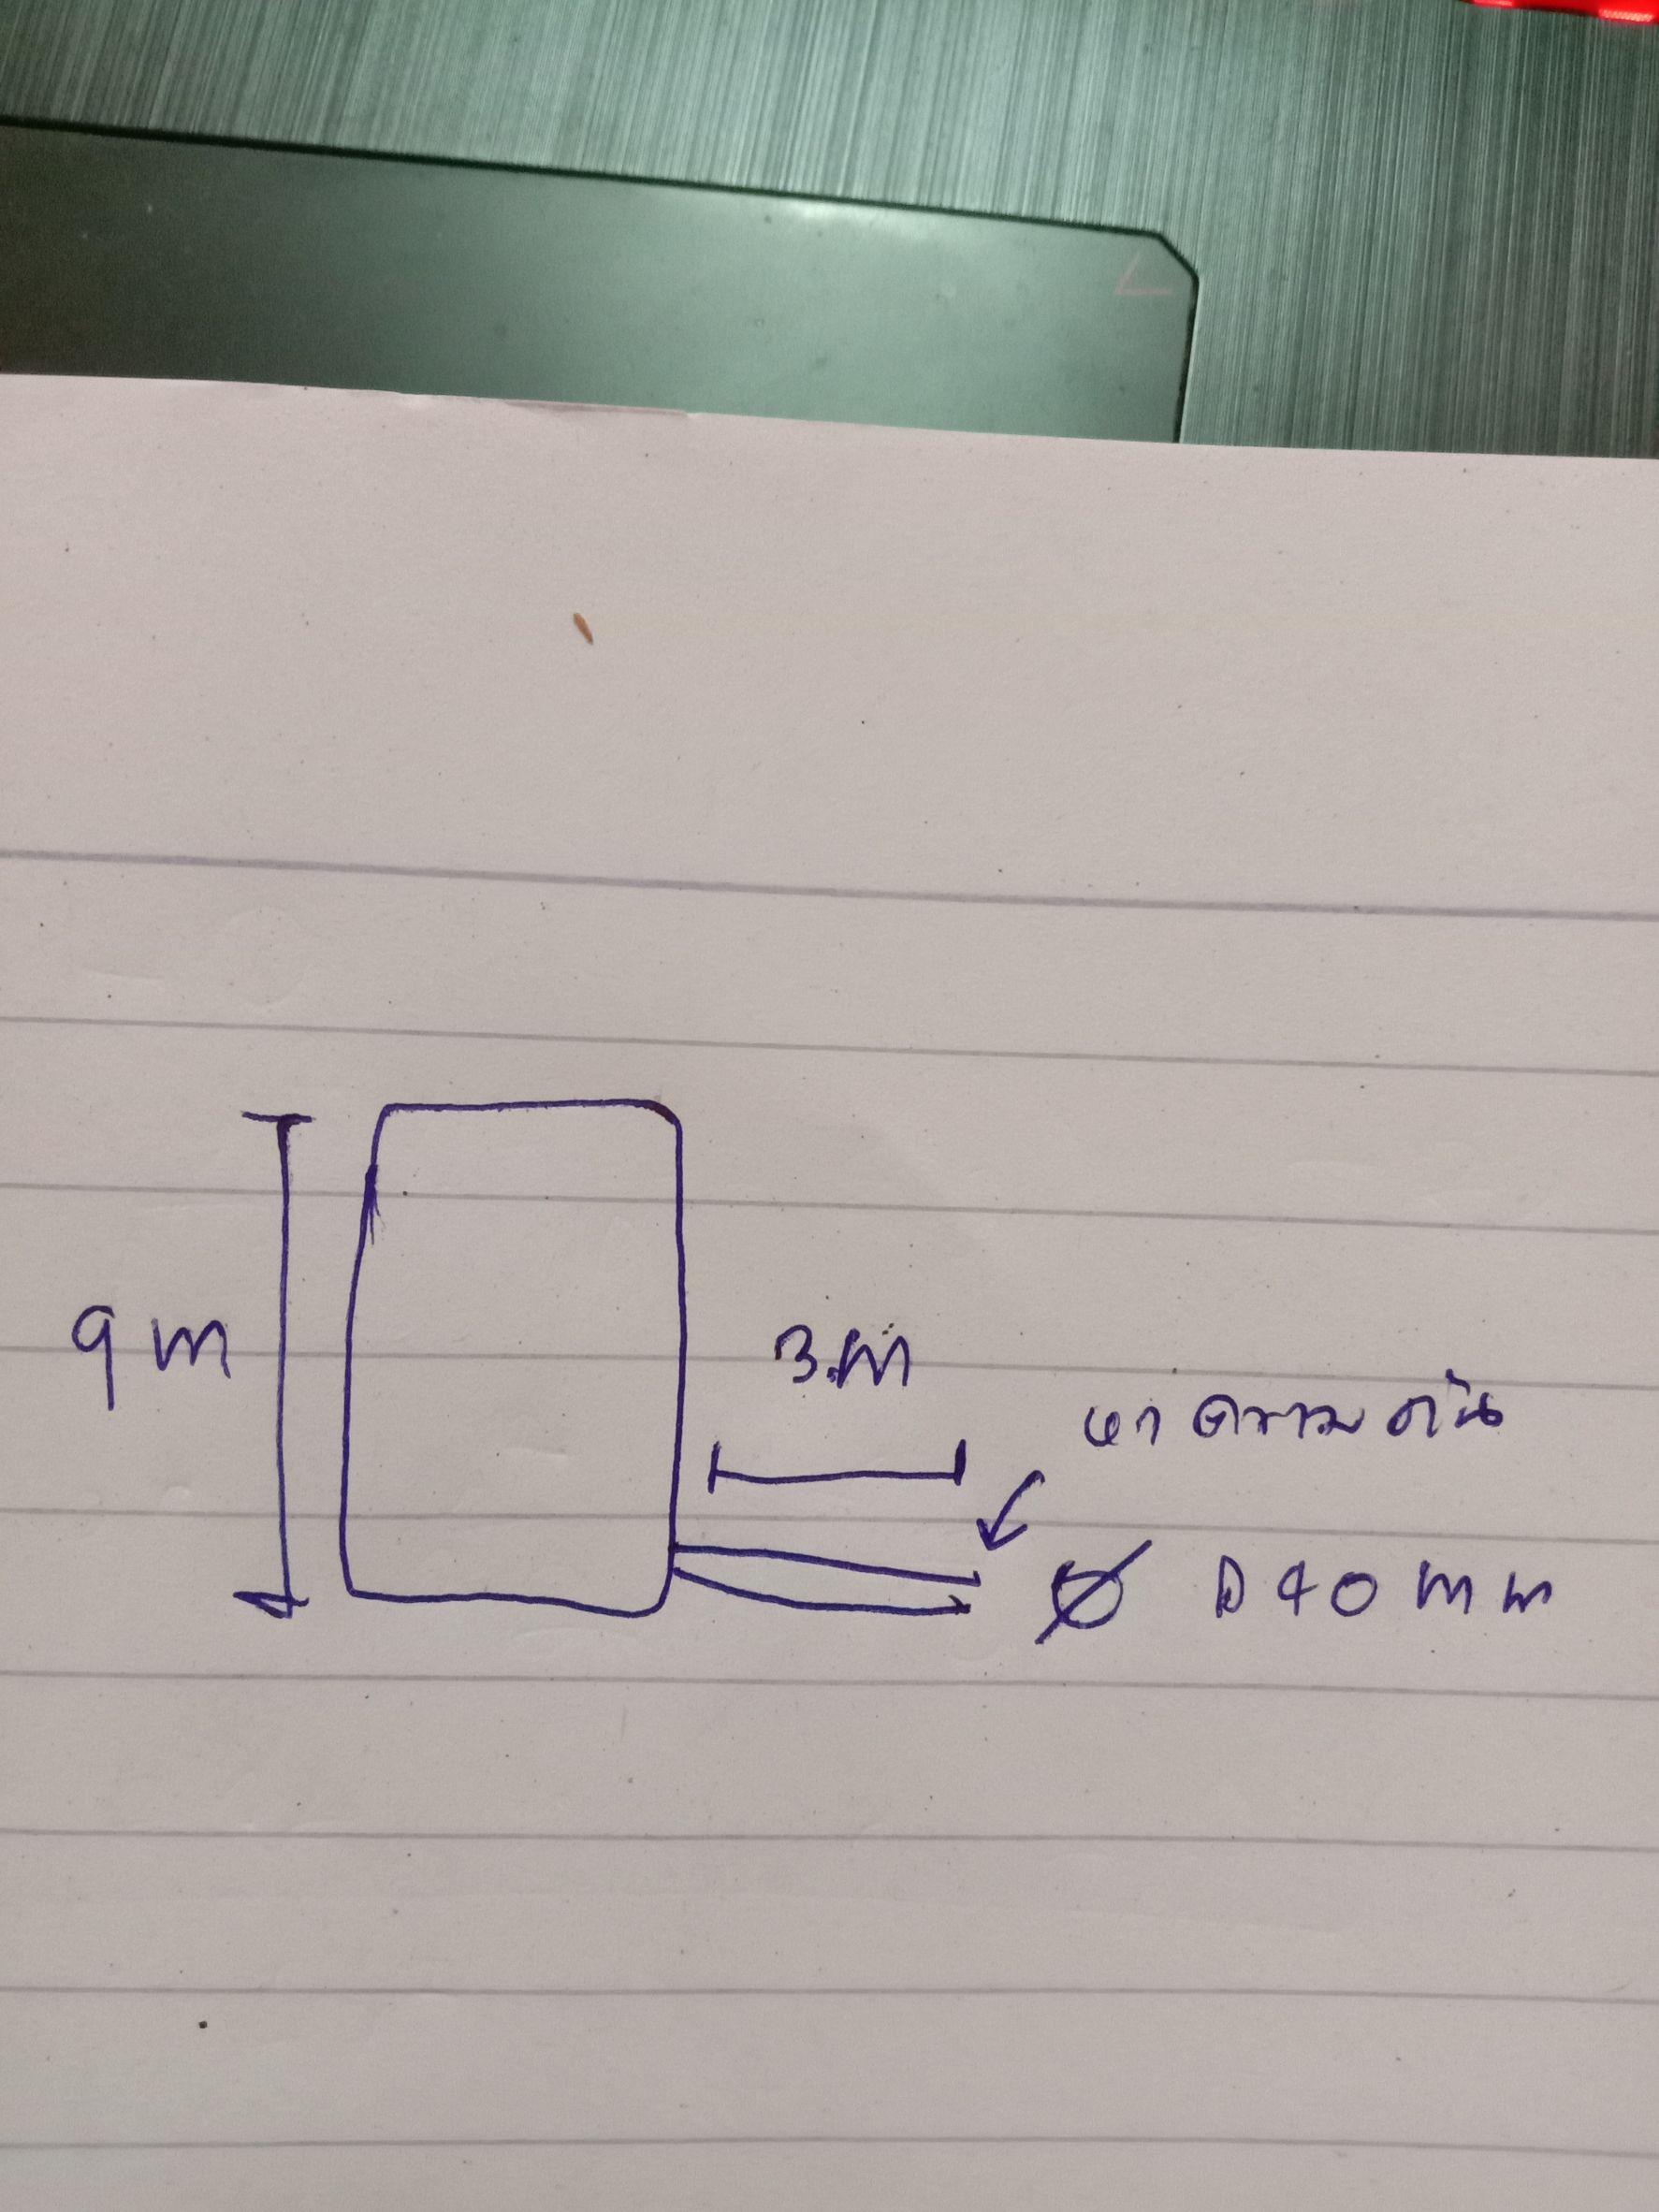 9 m
3.m
หาความดัน
Ø D 40 mm